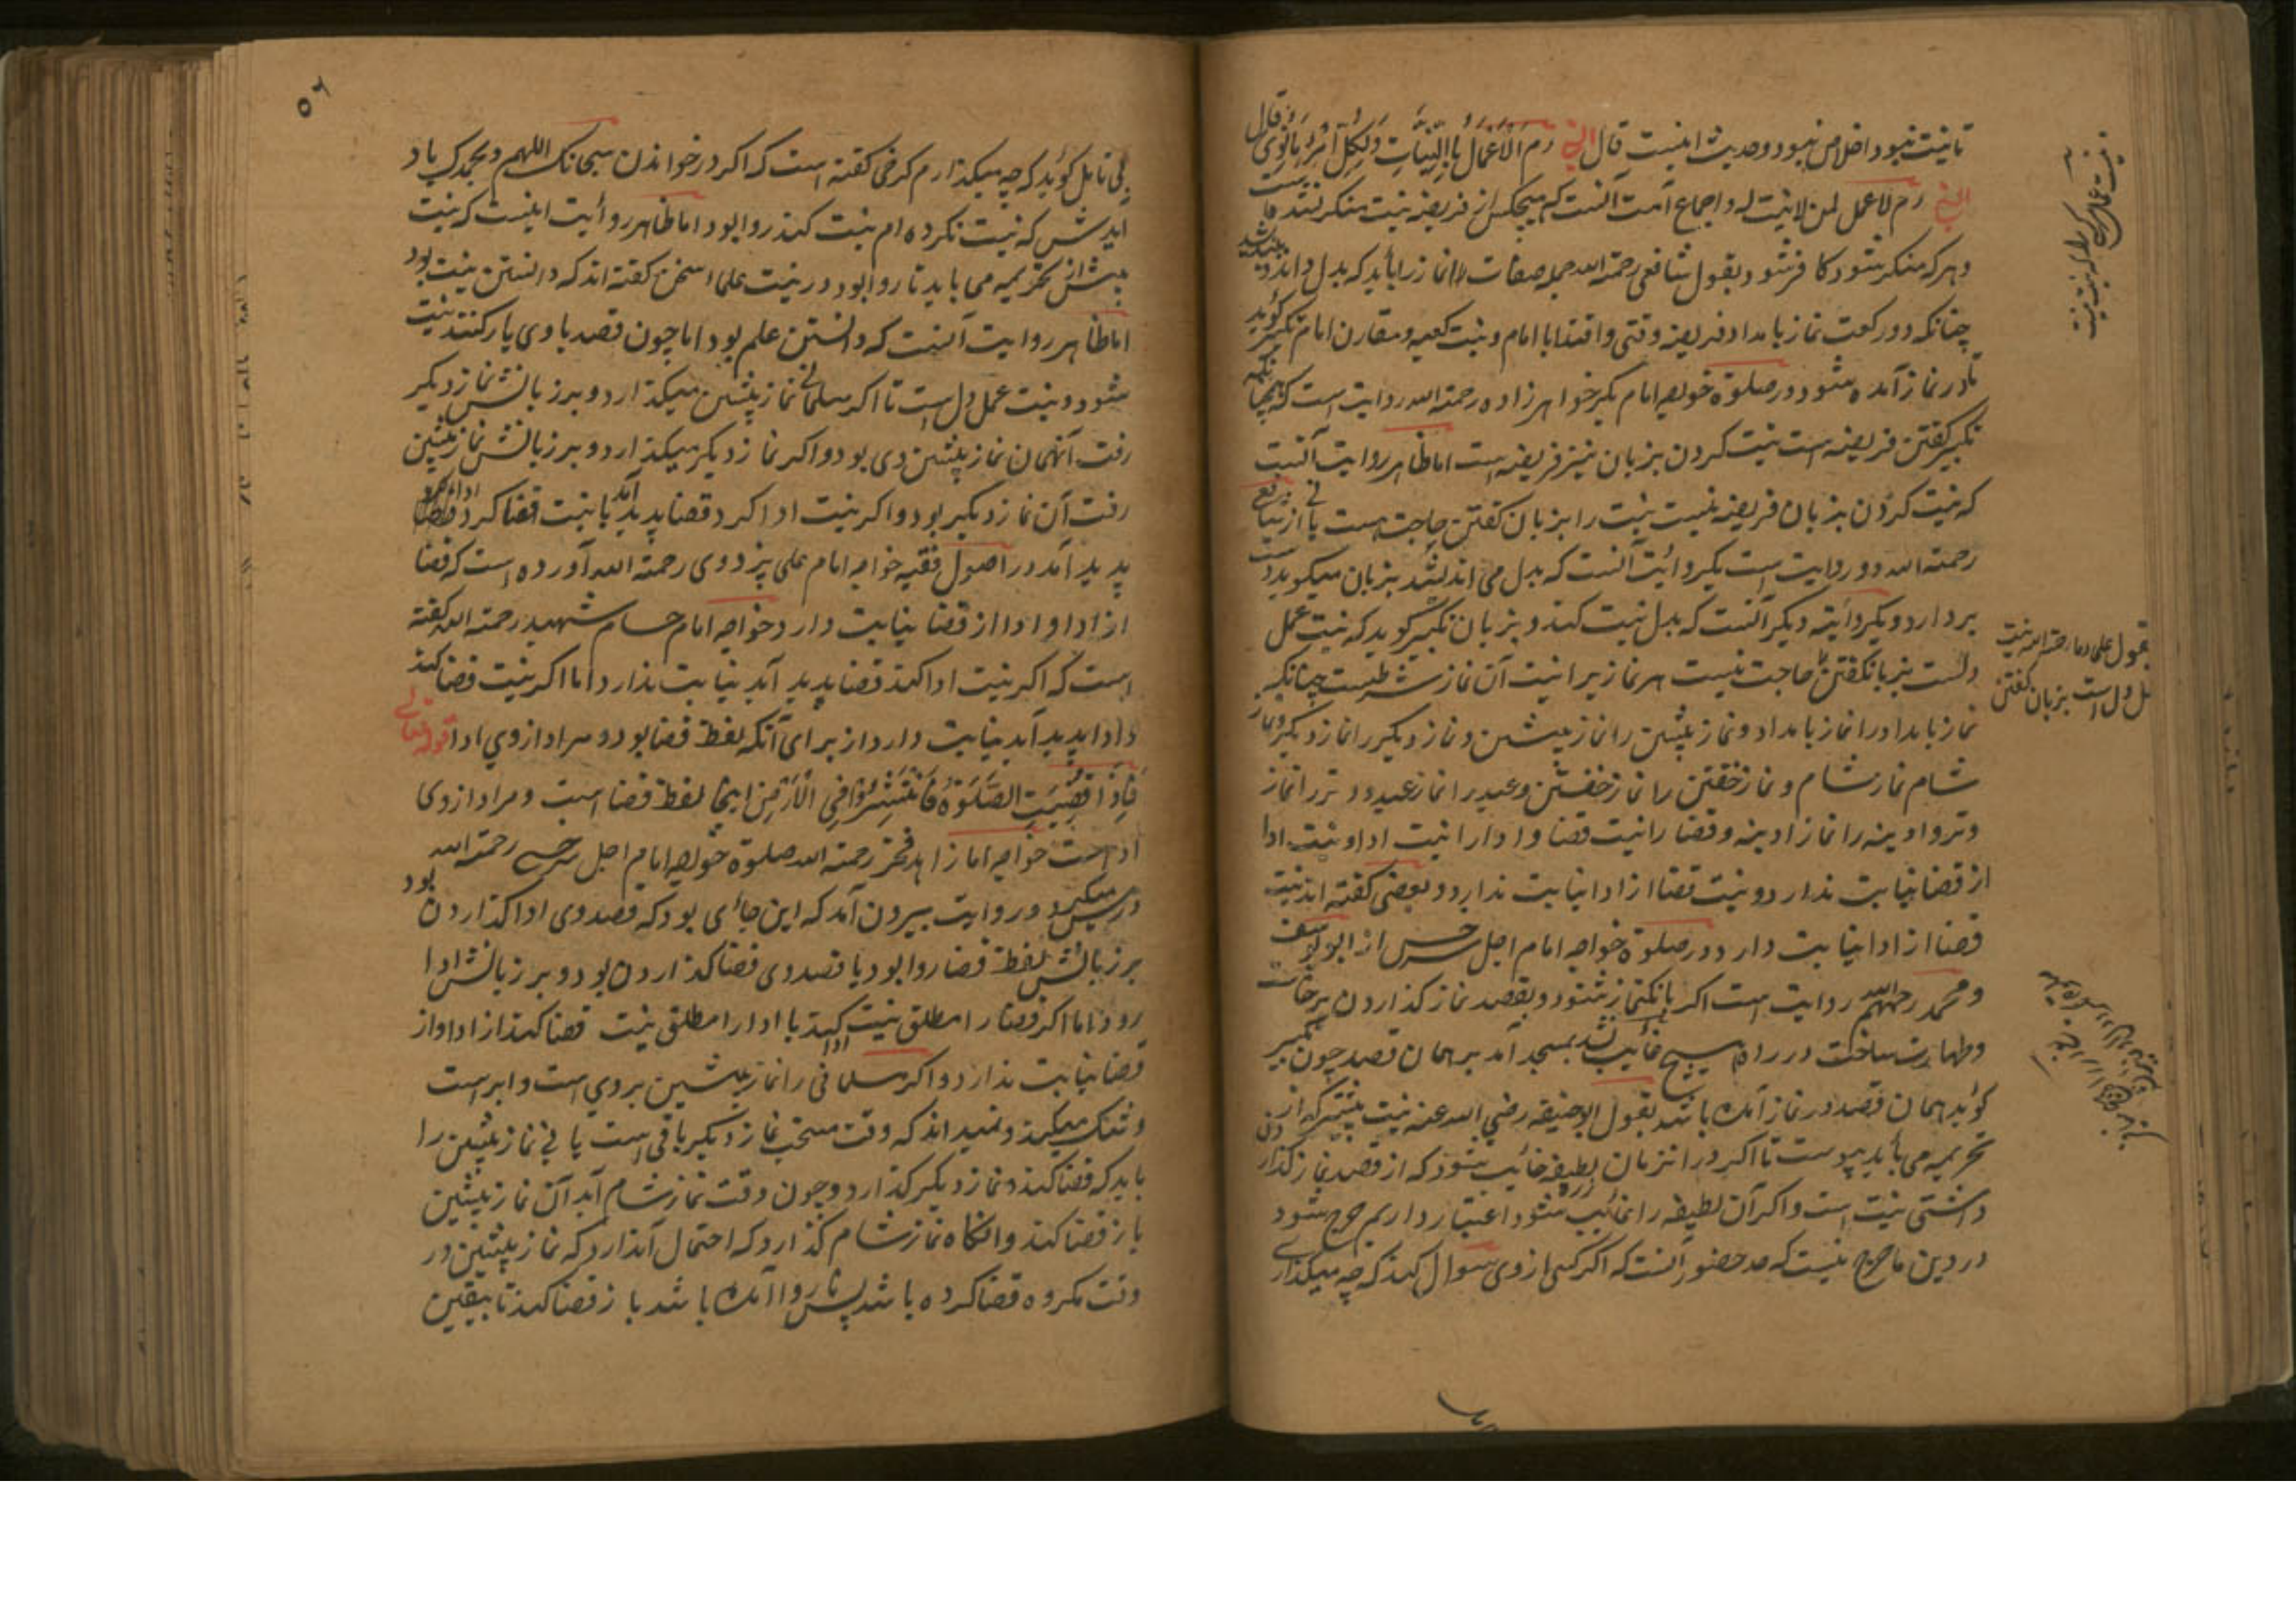 تا نیت نبود اخلاص نبود و حدیث اینست قال النبی رم الاعمال بالنیات ولکل امرء مانوی قال
النبی رم لا عمل لمن لا نیت له و اجماع امت آنست که هیچکس از فریضه نیت منکر نشده است
و هر که منکر شود کافر شود و بقول شافعی رحمة الله جمله صفات نماز را باید که بدل داند
چنانکه دو رکعت نماز بامداد فریضه وقتی و اقتدا با امام و نیت کعبه و مقارن امام تکبیر گوید
تا در نماز آمده شود و در صلوة خواجه امام بکر خواهر زاده رحمة الله روایت است که همچنانکه
تکبیر گفتن فریضه است نیت کردن بزبان نیز فریضه است اما ظاهر روایت آنست
که نیت کردن بزبان فریضه نیست نیت را بزبان گفتن حاجت هست یا نی از شافع
رحمة الله دو روایت است یکروایت آنست که بدل می اندیشد بزبان میگوید دست
بردارد و یکروایته دیگر آنست که بدل نیت کند و بزبان تکبیر گوید که نیت عمل
دلست بزبان گفتن حاجت نیست هر نماز یرا نیت آن نماز شرطیست چنانکه
نماز بامداد را نماز بامداد و نماز پیشین را نماز پیشین و نماز دیگر را نماز دیگر و نماز
شام نماز شام و نماز خفتن را نماز خفتن و عید را نماز عید و وتر را نماز
وتر و ادینه را نماز ادینه و قضا را نیت قضا و ادا را نیت ادا و نیت ادا
از قضا نیابت ندارد و نیت قضا از ادا نیابت ندارد و بعضی گفته اند نیت
قضا از ادا نیابت دارد و در صلوة خواجه امام اجل سرخسی از ابو یوسف
و محمد رحمهم الله روایت است اگر بانگ نماز شنود و بقصد نماز گذاردن برخاست
و طهارت ساخت در راه هیچ غائب نشد بمسجد آمد بر همان قصد چون تکبیر
گوید همان قصد در نماز آمده باشد بقول ابو حنیفه رضی الله عنه نیت پیشتر که از
تحریمه می باید پیوست تا اگر در انزمان لطیفه غائب شود که از قصد نماز گذاردن
داشتی نیت است و اگر آن لطیفه را غائب شود اعتبار داریم حرج شود
در دین ما حرج نیست که حد حضور آنست که اگر کسی از وی سوال کند که چه میگذاری
بقول علماء رحمة الله نیت
دل است بزبان گفتن
۵۶
بی تامل گوید که چه میگذارم کرخی گفته است که اگر در خواندن سبحانک اللهم و بحمدک یاد
ایدش که نیت نکرده ام نیت کند روا بود اما ظاهر روایت اینست که نیت
پیش از تحریمه می باید تا روا بود و در نیت علما سخن گفته اند که دانستن نیت بود
اما ظاهر روایت آنست که دانستن علم بود اما چون قصد با وی یار کنند نیت
شود و نیت عمل دل است تا اگر مسلمانی نماز پیشین میگذارد و بر زبانش نماز دیگر
رفت آنهمان نماز پیشین وی بود و اگر نماز دیگر میگذارد و بر زبانش نماز پیشین
رفت آن نماز دیگر بود و اگر نیت ادا کرد قضا پدید آمد یا نیت قضا کرد
پدید آمد در اصول فقیه خواجه امام علی پزدوی رحمة الله آورده است که قضا
از ادا و ادا از قضا نیابت دارد خواجه امام حسام شهید رحمة الله گفته
است که اگر نیت ادا کند قضا پدید آید نیابت ندارد اما اگر نیت قضا کند
ادا پدید آید نیابت دارد از برای آنکه لفظ قضا بود و مراد از وی ادا قوله تعالی
فاذا قضیت الصلوة فانتشروا فی الارض اینجا لفظ قضا است و مراد از وی
ادا است خواجه امام زاهد فخر رحمة الله صلوة خواجه امام اجل سرخسی رحمة الله
درس میگیرد و روایت بیرون آمد که این جائی بود که قصد وی ادا گذاردن بود
بر زبانش لفظ قضا روا بود یا قصد وی قضا گذاردن بود و بر زبانش ادا
رود اما اگر قضا را مطلق نیت ادا کند یا ادا را مطلق نیت قضا کند از ادا و از
قضا نیابت ندارد و اگر مسلمانی را نماز پیشین بروی است و ابر است
و شک میکند و نمیداند که وقت مستحب نماز دیگر باقی است یا نی نماز پیشین را
باید که قضا کند و نماز دیگر گذارد و چون وقت نماز شام آید آن نماز پیشین
باز قضا کند و انگاه نماز شام گذارد که احتمال آندارد که نماز پیشین در
وقت مکروه قضا کرده باشد پس ناروا آمده باشد باز قضا کند تا بیقین